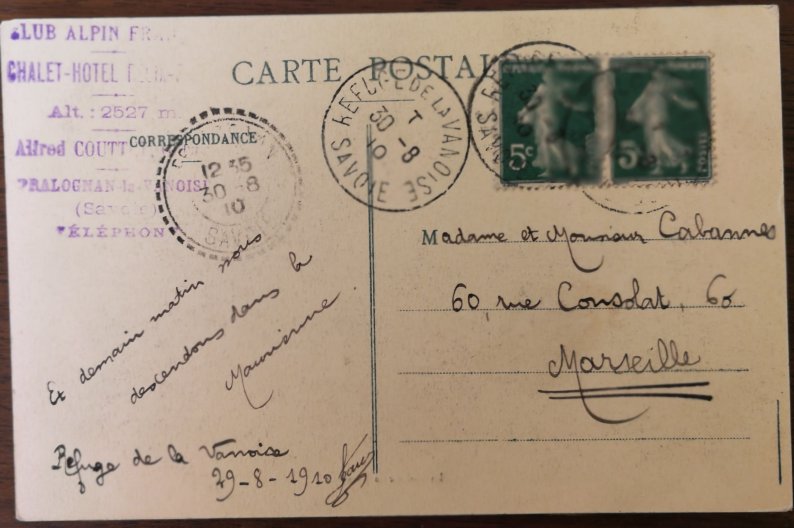 CLUB ALPIN FRAN
CHALET-HOTEL
Alt. : 2527 m.
Alfred COUTT
PRALOGNAN-la-VANOISE
(Savoie)
TÉLÉPHON
CARTE POSTALE
CORRESPONDANCE
12 35
30 -8
10
SAVOIE
REFUGE DE LA VANOISE
30 -8
10
SAVOIE
5c
5
Madame et Monsieur Cabannes
60, rue Consolat, 60
Marseille
Et demain matin nous
descendons dans la
Maurienne.
Refuge de la Vanoise
29-8-1910